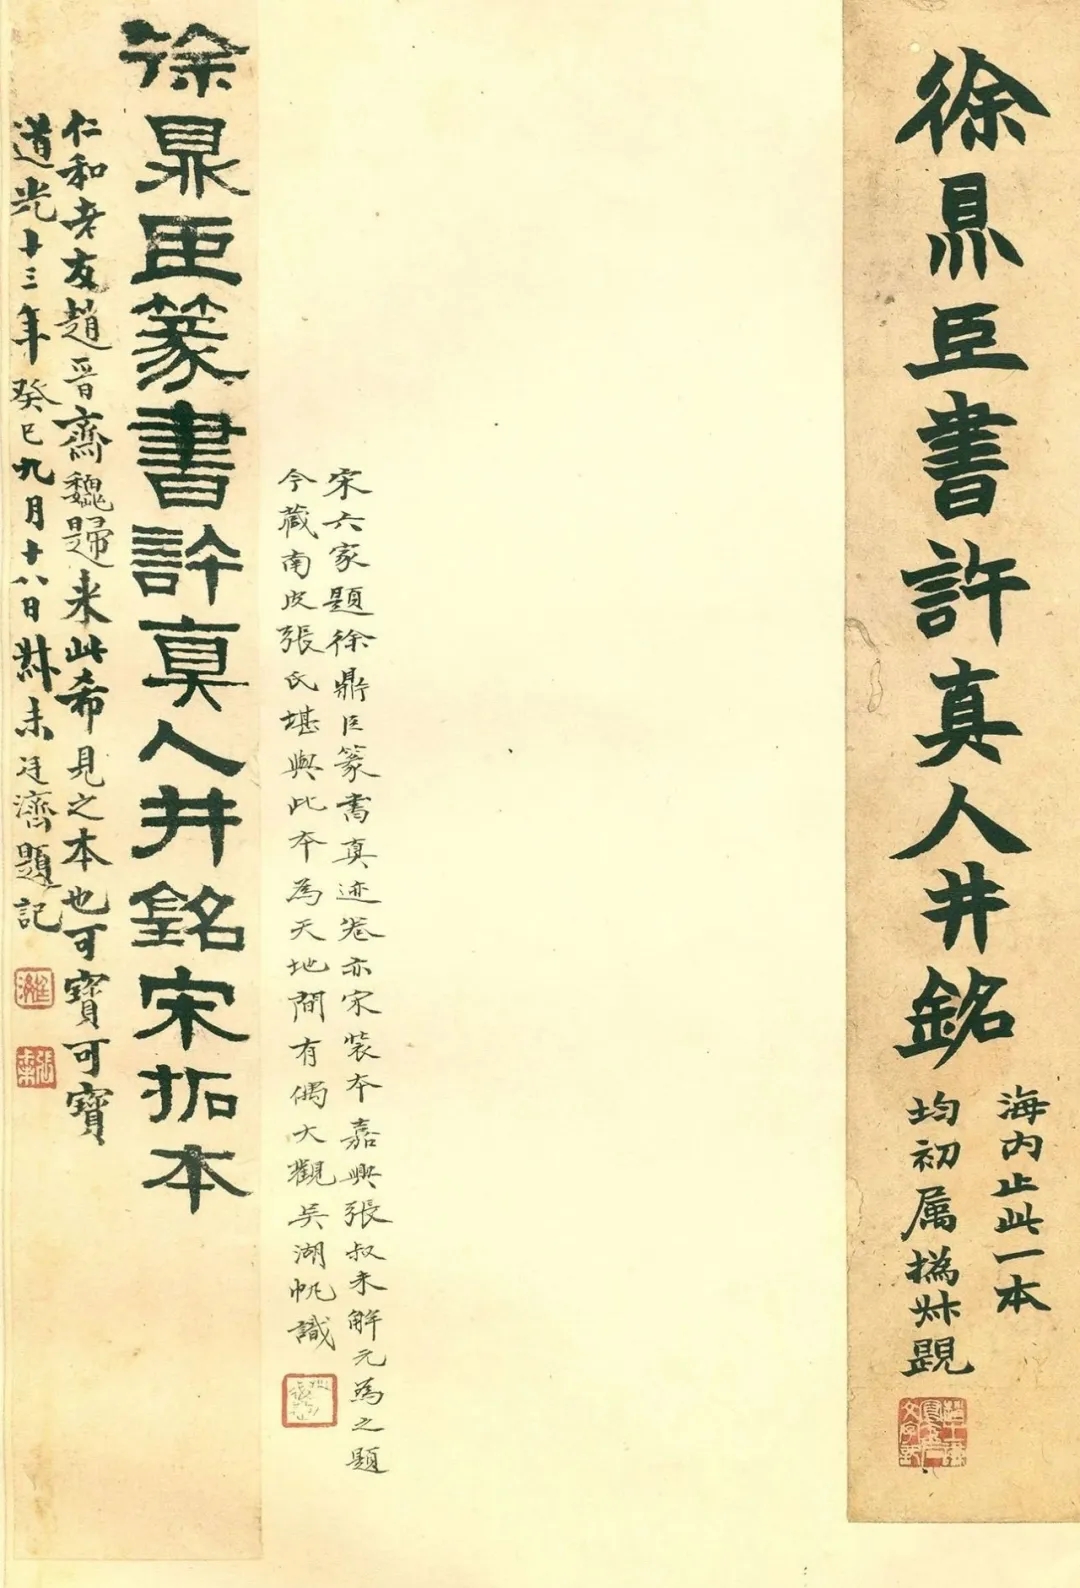 徐鼎臣書許真人井銘
海内止此一本
均初属撝叔題
宋六家題徐鼎臣篆書真迹卷亦宋裝本嘉興張叔未解元為之題
今藏南皮張氏堪與此本為天地間有偶大觀吳湖帆識
徐鼎臣篆書許真人井銘宋拓本
仁和老友趙晋齋魏歸来此希見之本也可寶可寶
道光十三年癸巳九月十八日叔未廷濟題記